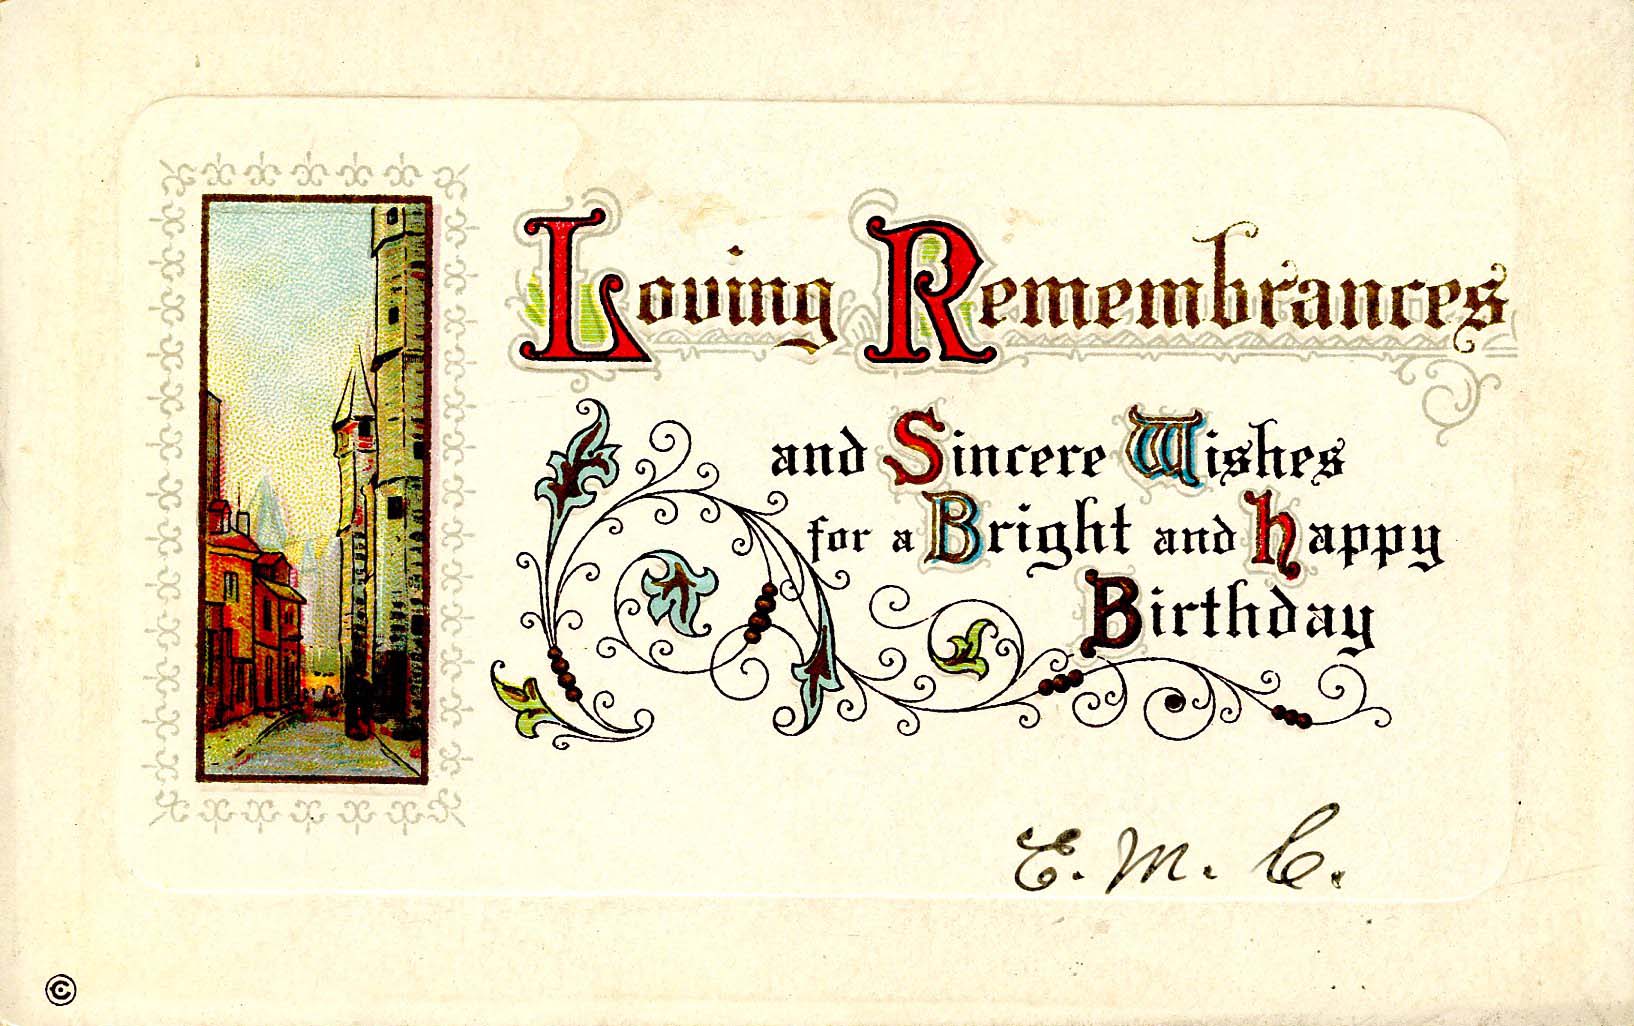 Loving Remembrances
and Sincere Wishes
for a Bright and Happy
Birthday
E. M. C.
©